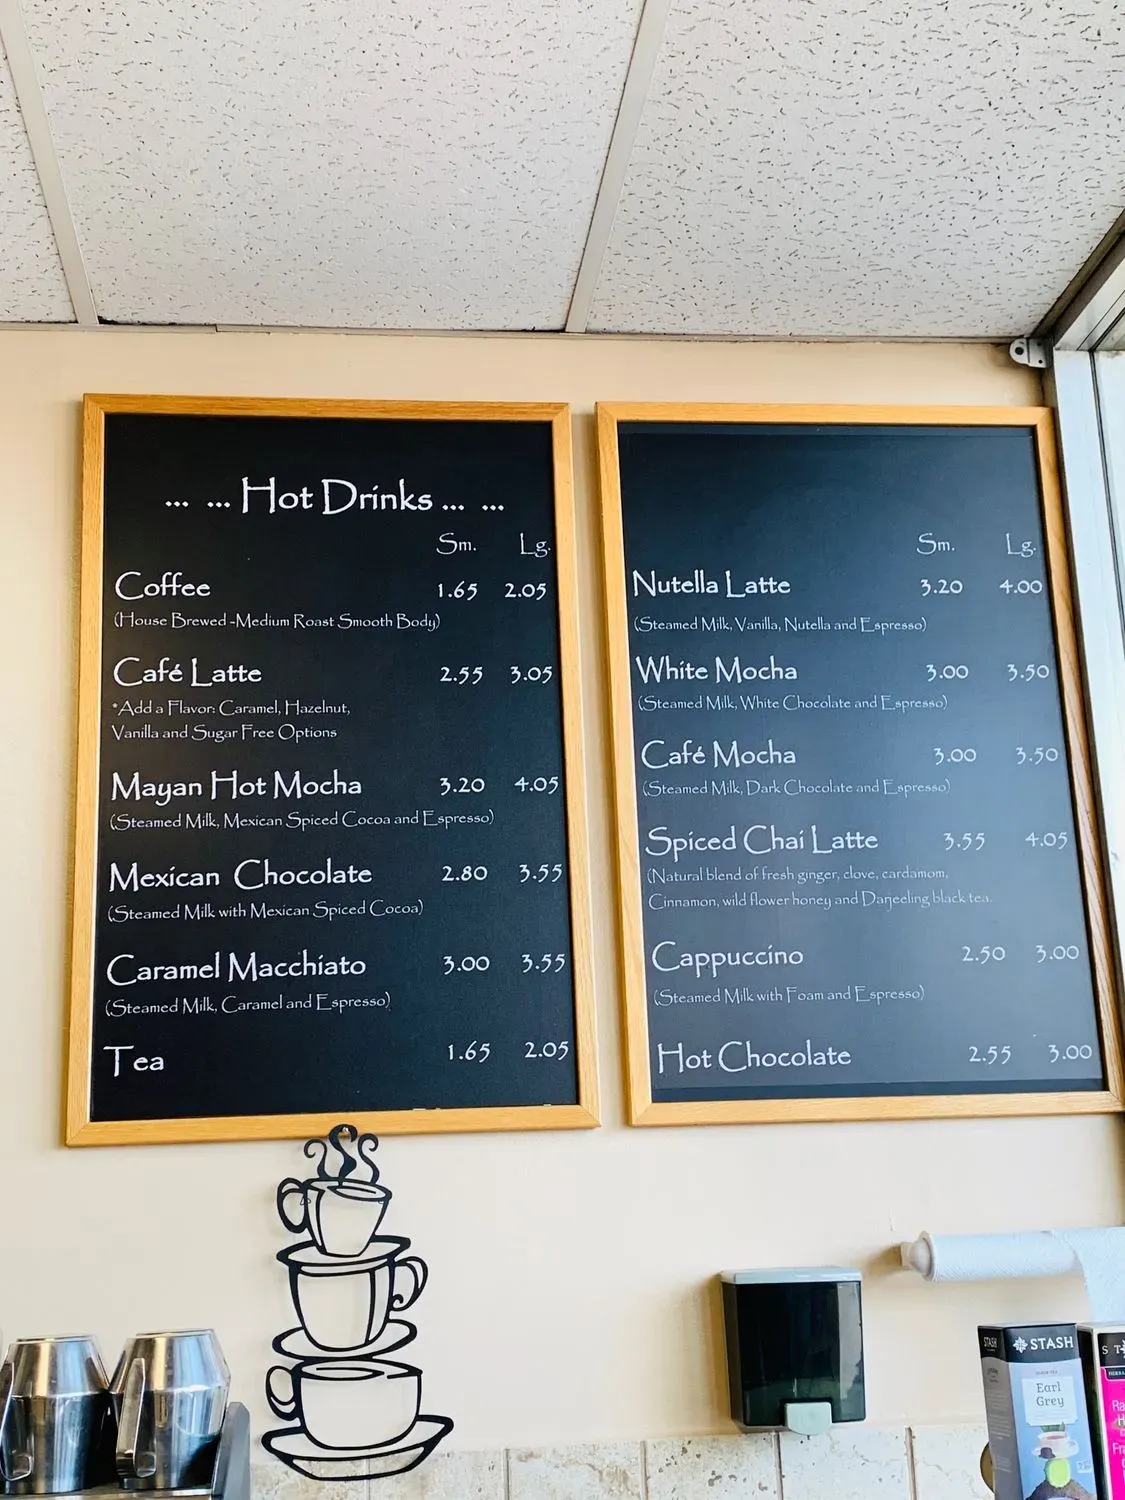 ... ... Hot Drinks ... ...
Sm. Lg.
Coffee 1.65 2.05
(House Brewed -Medium Roast Smooth Body)
Café Latte 2.55 3.05
*Add a Flavor: Caramel, Hazelnut,
Vanilla and Sugar Free Options
Mayan Hot Mocha 3.20 4.05
(Steamed Milk, Mexican Spiced Cocoa and Espresso)
Mexican Chocolate 2.80 3.55
(Steamed Milk with Mexican Spiced Cocoa)
Caramel Macchiato 3.00 3.55
(Steamed Milk, Caramel and Espresso)
Tea 1.65 2.05
Sm. Lg.
Nutella Latte 3.20 4.00
(Steamed Milk, Vanilla, Nutella and Espresso)
White Mocha 3.00 3.50
(Steamed Milk, White Chocolate and Espresso)
Café Mocha 3.00 3.50
(Steamed Milk, Dark Chocolate and Espresso)
Spiced Chai Latte 3.55 4.05
(Natural blend of fresh ginger, clove, cardamom,
Cinnamon, wild flower honey and Darjeeling black tea.
Cappuccino 2.50 3.00
(Steamed Milk with Foam and Espresso)
Hot Chocolate 2.55 3.00
STASH
STASH
Earl
Grey